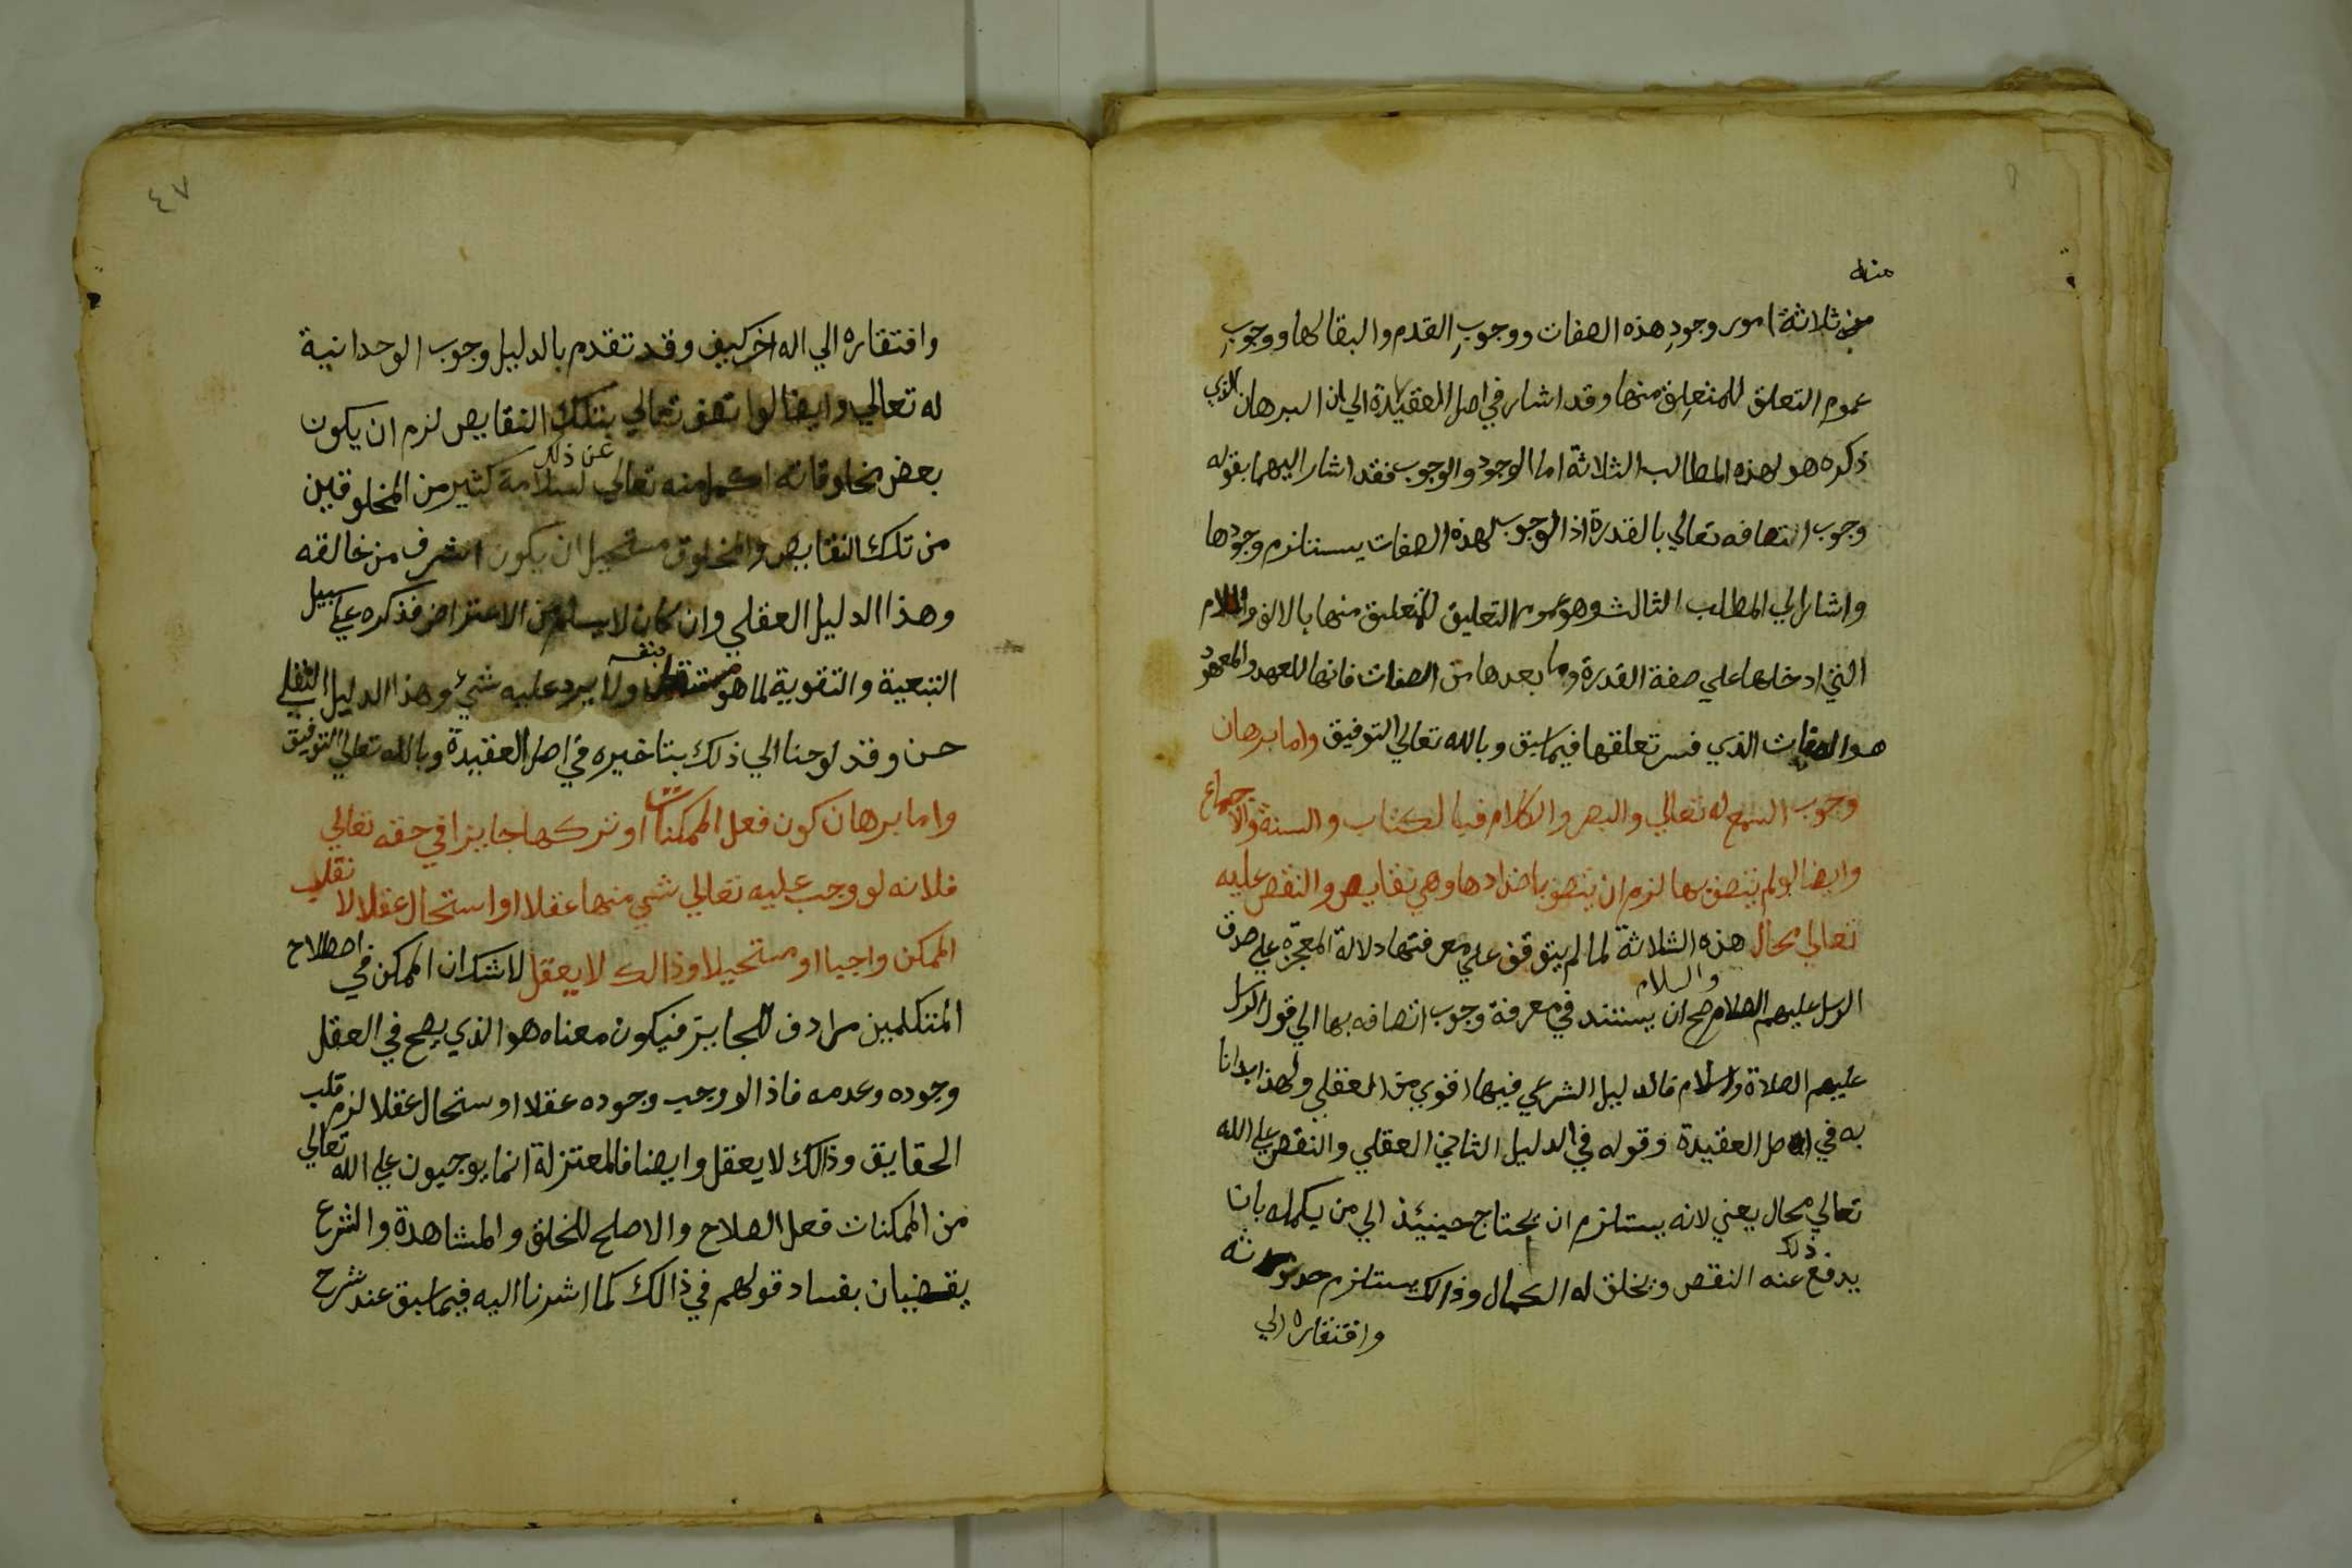 منه
من ثلاثة امور وجود هذه الصفات ووجوب القدم والبقا لها ووجوب
عموم التعلق للمتعلق منها وقد اشار في اصل العقيدة الي ان البرهان الذي
ذكره هو لهذه المطالب الثلاثة اما الوجود والوجوب فقد اشار اليهما بقوله
وجوب اتصافه تعالي بالقدرة اذ الوجوب لهذه الصفات يستلزم وجودها
واشار الي المطلب الثالث وهو عموم التعليق للمتعلق منها بالالف واللام
التي ادخلها علي صفة القدرة وما بعدها من الصفات فانها للعهد والمعهود
هو الصفات الذي فسر تعلقها فيما سبق وبالله تعالي التوفيق واما برهان
وجوب السمع له تعالي والبصر والكلام فبالكتاب والسنة والاجماع
وايضا لو لم يتصف بها لزم ان يتصف باضدادها وهي نقايص والنقص عليه
تعالي محال هذه الثلاثة لما لم يتوقف علي معرفتها دلالة المعجزة علي صدق
والسلام
الرسل عليهم الصلاة صح ان يستند في معرفة وجوب اتصافه بها الي قول الرسل
عليهم الصلاة والسلام فالدليل الشرعي فيها اقوي من العقلي ولهذا بدانا
به في اصل العقيدة وقوله في الدليل الثاني العقلي والنقص علي الله
تعالي محال يعني لانه يستلزم ان يحتاج حينيئذ الي من يكمله بان
ذلك
يدفع عنه النقص ويخلق له الكمال وذالك يستلزم حدوثه
وافتقاره الي
٤٧
وافتقاره الي اله اخر كيف وقد تقدم بالدليل وجوب الوحدانية
له تعالي وايضا لو اتصف تعالي بتلك النقايص لزم ان يكون
عن ذلك
بعض مخلوقاته اكمل منه تعالي لسلامة كثير من المخلوقين
من تلك النقايص والمخلوق مستحيل ان يكون اشرف من خالقه
وهذا الدليل العقلي وان كان لا يسلم من الاعتراض فذكره علي سبيل
بنفسه
التبعية والتقوية لما هو مستقل ولا يرد عليه شيئ وهذا الدليل النقلي
حسن وقد لوحنا الي ذلك بتاخيره في اصل العقيدة وبالله تعالي التوفيق
واما برهان كون فعل الممكنات او تركها جايزا في حقه تعالي
فلانه لو وجب عليه تعالي شي منها عقلا او استحال عقلا لانقلب
الممكن واجبا او مستحيلا وذالك لا يعقل لا شك ان الممكن في اصطلاح
المتكلمين مرادف للجايز فيكون معناه هو الذي يصح في العقل
وجوده وعدمه فاذا لو وجب وجوده عقلا او ستحال عقلا لزم قلب
الحقايق وذالك لا يعقل وايضا فالمعتزلة انما يوجبون علي الله تعالي
من الممكنات فعل الصلاح والاصلح للخلق والمشاهدة والشرع
يقضيان بفساد قولهم في ذالك كما اشرنا اليه فيما سبق عند شرح